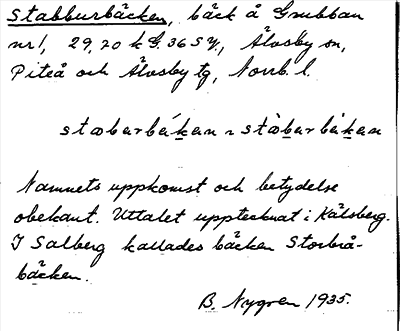 Stabburbäcken, bäck å Grubban
nr 1, 29,20 k G. 36 SV., Älvsby sn,
Piteå och Älvsby tg, Norrb. l.
stabarbäkan ~ stàbarbäkan
Namnets uppkomst och betydelse
obekant. Uttalet upptecknat i Kälsberg.
I Salberg kallades bäcken Storbrå-
bäcken.
B. Nygren 1935.